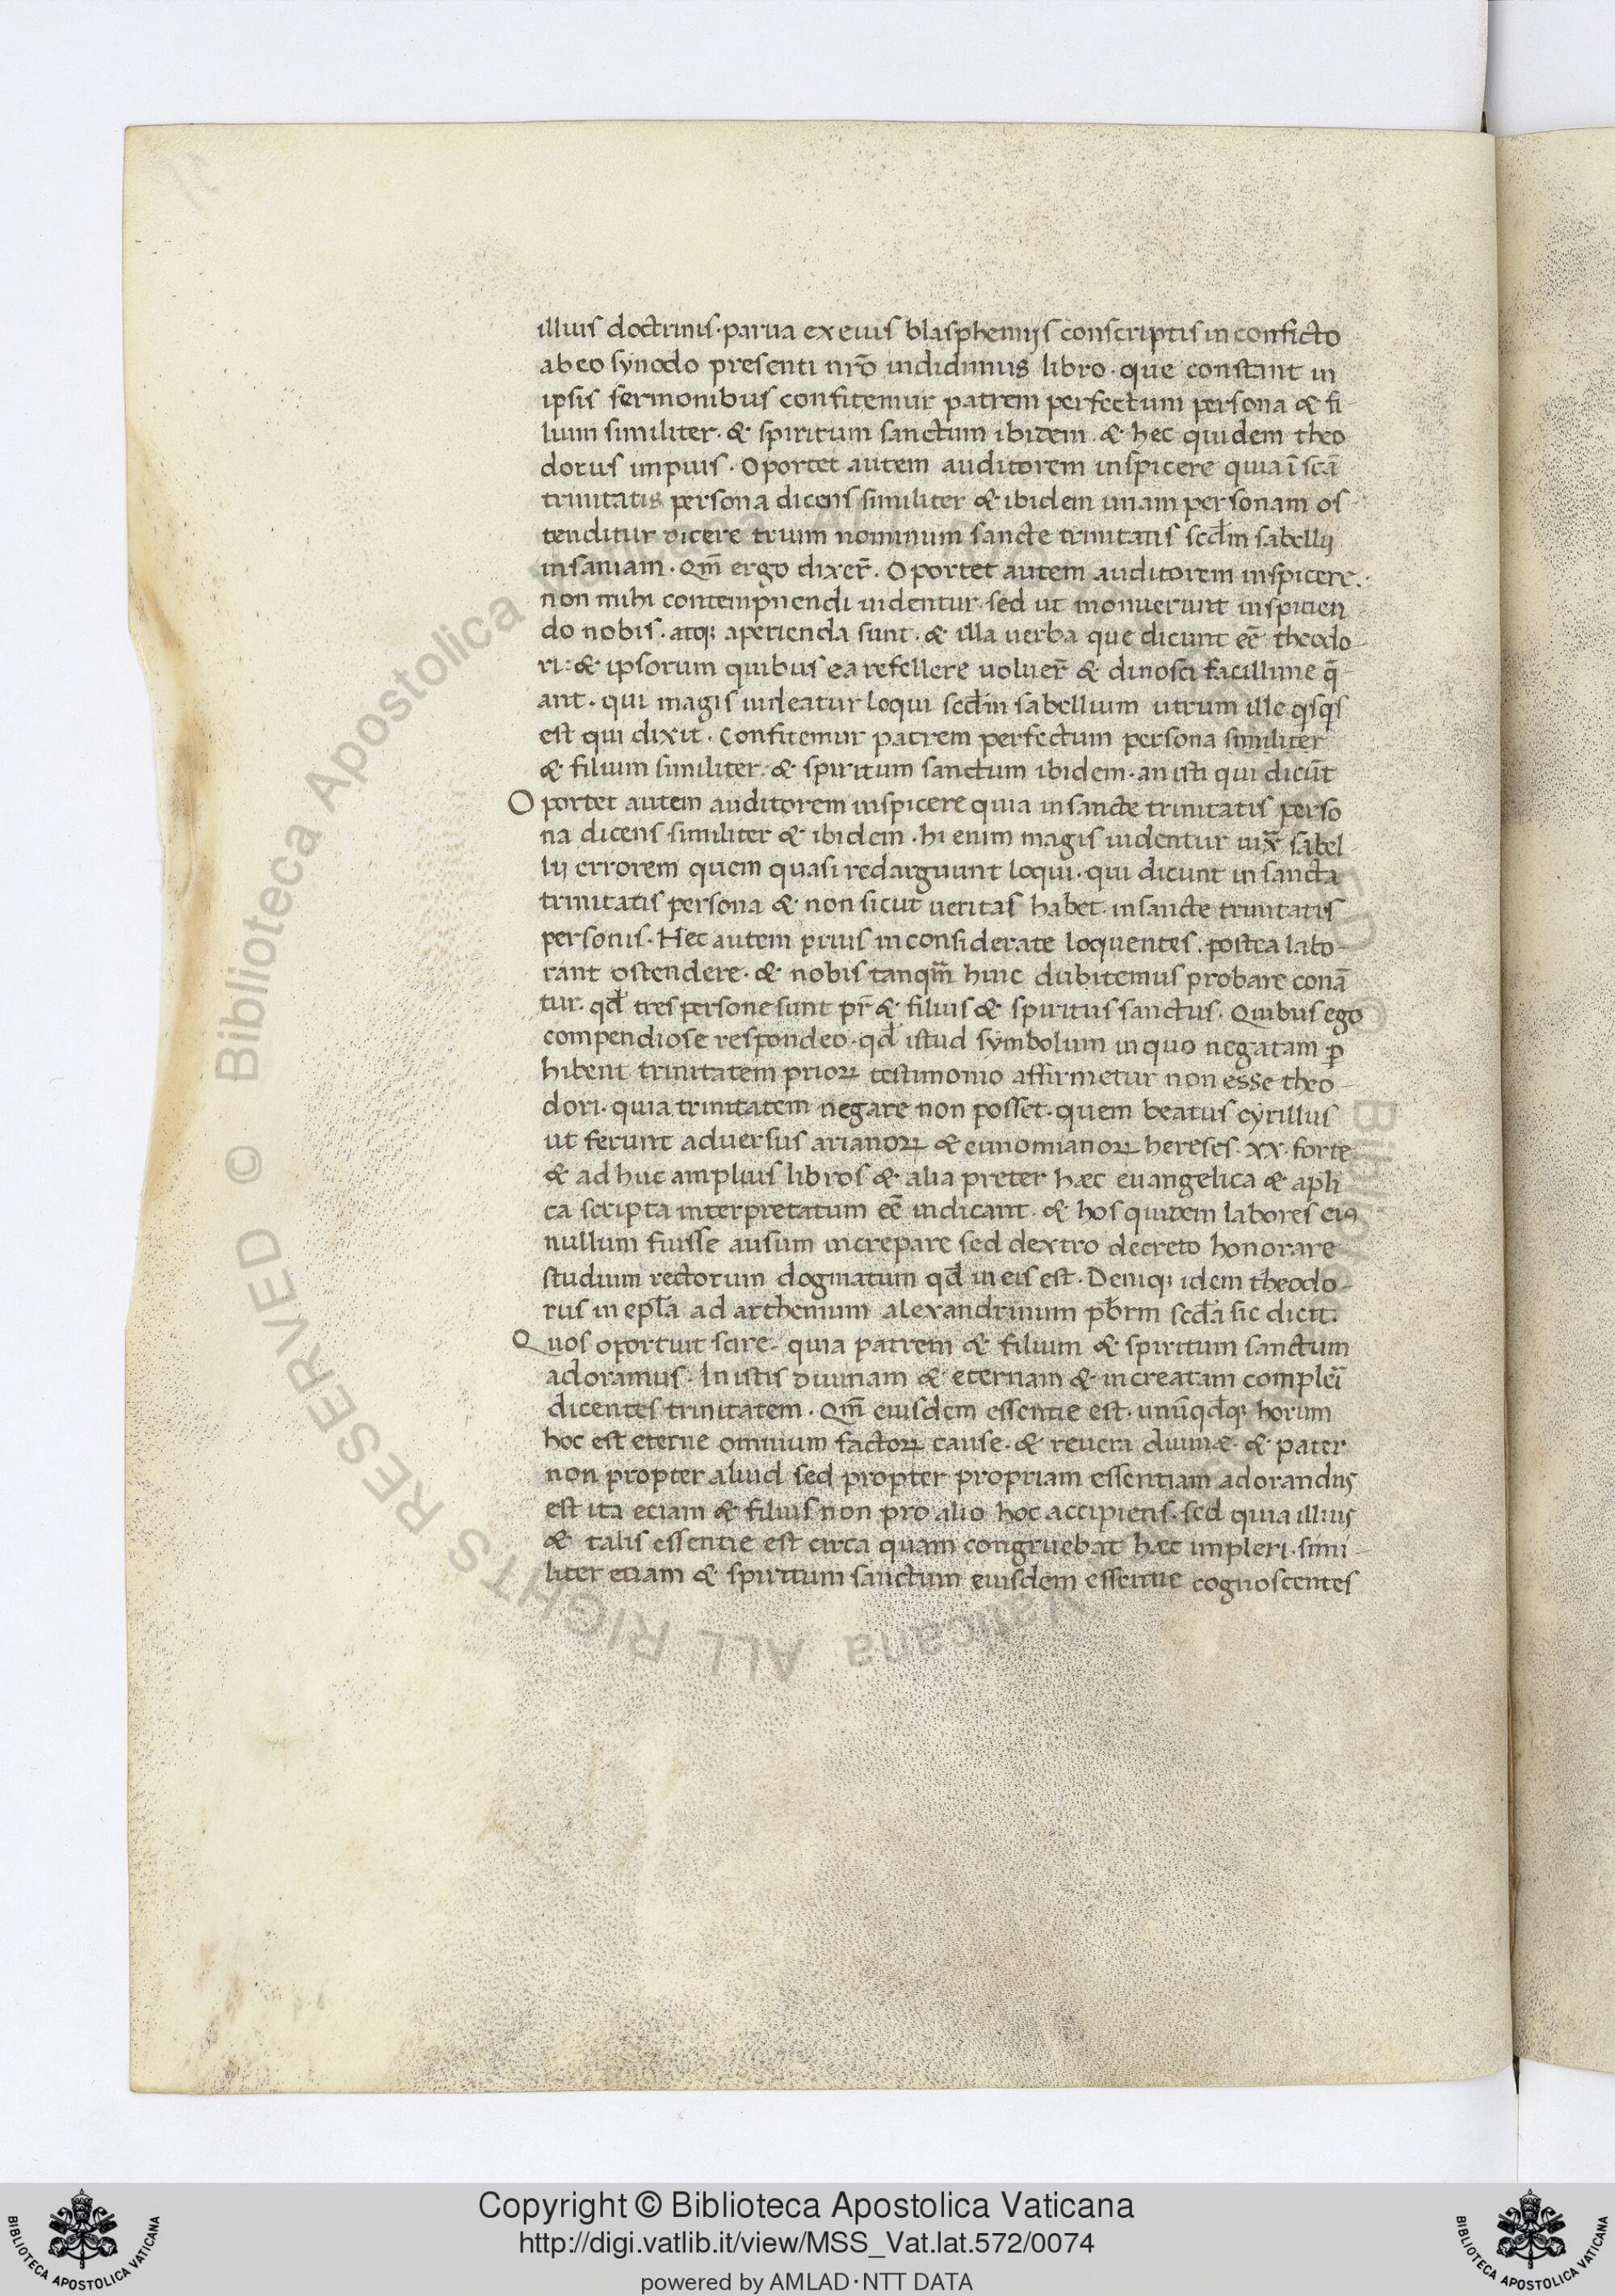 illius doctrinis · parua ex eius blasphemijs conscriptis in conficto
ab eo synodo presenti nr̄o indidimus libro · que constant in
ipsis sermonibus confitemur patrem perfectum persona & fi
lium similiter · & spiritum sanctum ibidem · & hec quidem theo
dorus impius · Oportet autem auditorem inspicere quia ī scā
trinitatis persona dicens similiter & ibidem unam personam os-
tenditur dicere trium nominum sancte trinitatis scd̄m sabellij
insaniam · Qm̄ ergo dixer̄ · Oportet autem auditorem inspicere ·
non mihi contempnendi uidentur · sed ut monuerunt inspicien
do nobis · atq; aperienda sunt · & illa uerba que dicunt eē theodo-
ri : & ipsorum quibus ea refellere uoluer̄ & dinosci facillime q̄-
ant · qui magis uideatur loqui scd̄m sabellium utrum ille qsqs
est qui dixit · Confitemur patrem perfectum persona similiter
& filium similiter · & spiritum sanctum ibidem · an isti qui dicūt
Oportet autem auditorem inspicere quia in sancte trinitatis perso
na dicens similiter & ibidem · hi enim magis uidentur iux̄ sabel
lij errorem quem quasi redarguunt loqui · qui dicunt in sancta
trinitatis persona & non sicut ueritas habet · in sancte trinitatis
personis · Hec autem prius inconsiderate loquentes · postea labo-
rant ostendere · & nobis tanqm̄ hinc dubitemus probare conā
tur · qd̄ tres persone sunt pr̄ & filius & spiritus sanctus · Quibus ego
compendiose respondeo · qd̄ istud symbolum in quo negatam p
hibent trinitatem prioꝝ testimonio affirmetur non esse theo-
dori · quia trinitatem negare non posset · quem beatus cyrillus
ut ferunt aduersus arianoꝝ & eunomianoꝝ hereses · xx · forte
& ad huc amplius libros & alia preter hæc euangelica & apli
ca scripta interpretatum eē indicant · & hos quidem labores eiꝰ
nullum fuisse ausum increpare sed dextro decreto honorare
studium rectorum dogmatum qd̄ in eis est · Deniq; idem theodo-
rus in epl̄a ad arthemium alexandrinum pb̄rm scd̄a sic dicit ·
Quos oportuit scire · quia patrem & filium & spiritum sanctum
adoramus · In istis diuinam & eternam & increatam complerī
dicentes trinitatem · Qm̄ eiusdem essentie est · unūqd̄q; horum
hoc est eterne omnium factoꝝ cause · & reuera diuinæ · & pater
non propter aliud sed propter propriam essentiam adorandus
est ita eciam & filius non pro alio hoc accipiens · sed quia illius
& talis essentie est circa quam congruebat hæc impleri · simi-
liter etiam & spiritum sanctum eiusdem essentie cognoscentes
© Biblioteca Apostolica Vaticana ALL RIGHTS RESERVED
Copyright © Biblioteca Apostolica Vaticana
http://digi.vatlib.it/view/MSS_Vat.lat.572/0074
powered by AMLAD · NTT DATA
BIBLIOTECA APOSTOLICA VATICANA
BIBLIOTECA APOSTOLICA VATICANA